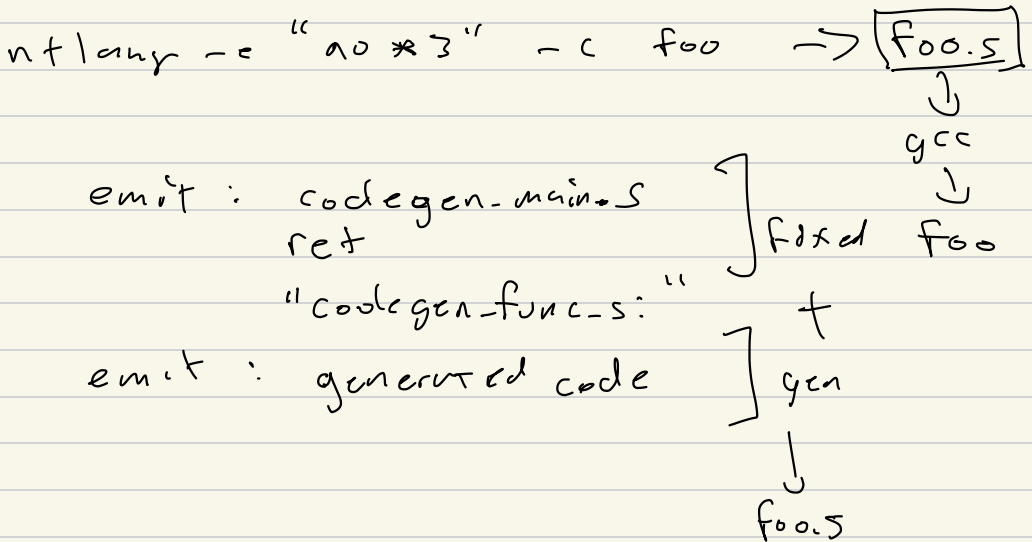 ntlang -e "a0 * 3" -c foo -> foo.s
gcc
emit : codegen_main.s
ret
fixed
foo
"codegen_func_s:"
+
emit : generated code
gen
foo.s